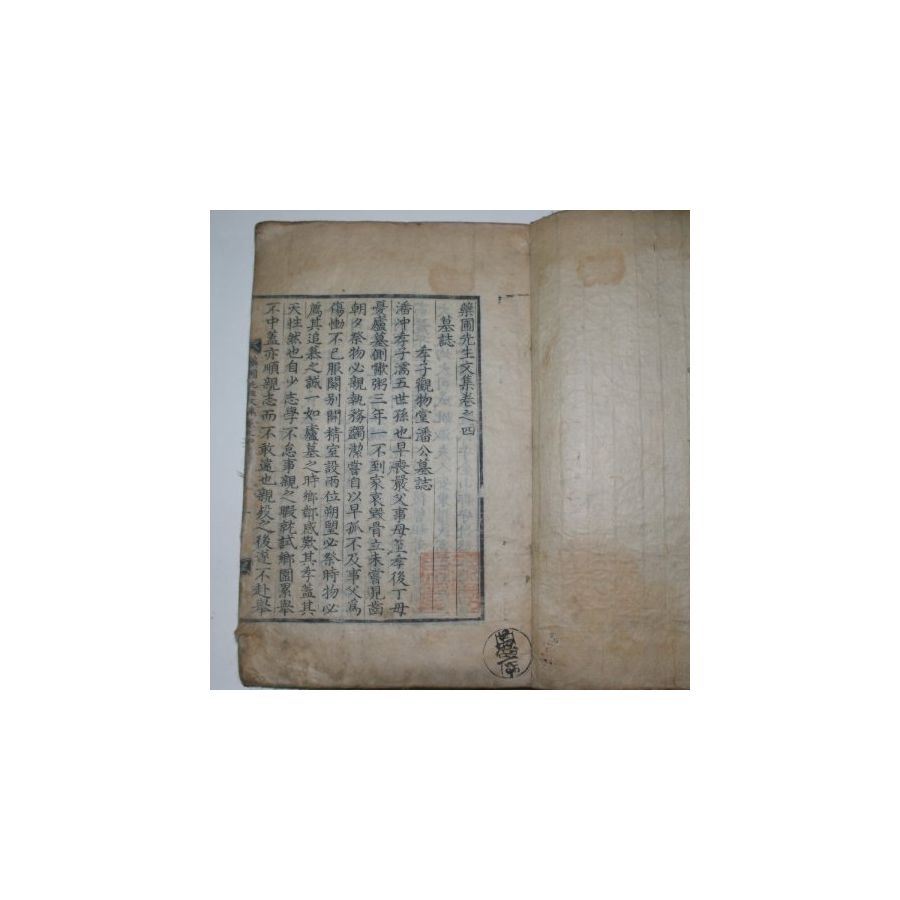 藥圃先生文集卷之四
墓誌
孝子觀物堂潘公墓誌
潘冲孝子濡五世孫也早喪嚴父事母篤孝後丁母
憂廬墓側歠粥三年一不到家哀毀骨立未嘗見齒
朝夕祭物必親執務蠲潔嘗自以早孤不及事父爲
傷慟不已服闋别闢精室設兩位朔望必祭時物必
薦其追慕之誠一如廬墓之時鄉鄰感歎其孝盖其
天性然也自少志學不怠事親之暇就試鄉圍累舉
不中盖亦順親志而不敢違也親歿之後遂不赴舉